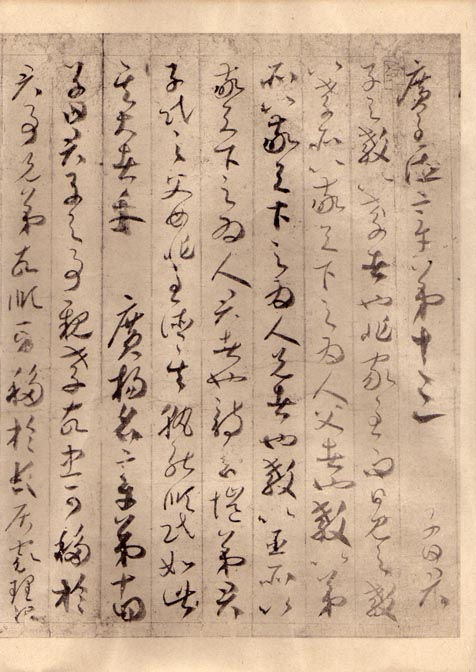 廣至德章第十三　子曰君
子之教以孝也非家至而日見之教
以孝所以敬天下之為人父者也教以弟
所以敬天下之為人兄者也教以臣所以
敬天下之為人君者也詩云愷弟君
子民之父母非至德其孰能順民如此
其大者乎　廣揚名章第十四
子曰君子之事親孝故忠可移於
君事兄弟故順可移於長居家理故